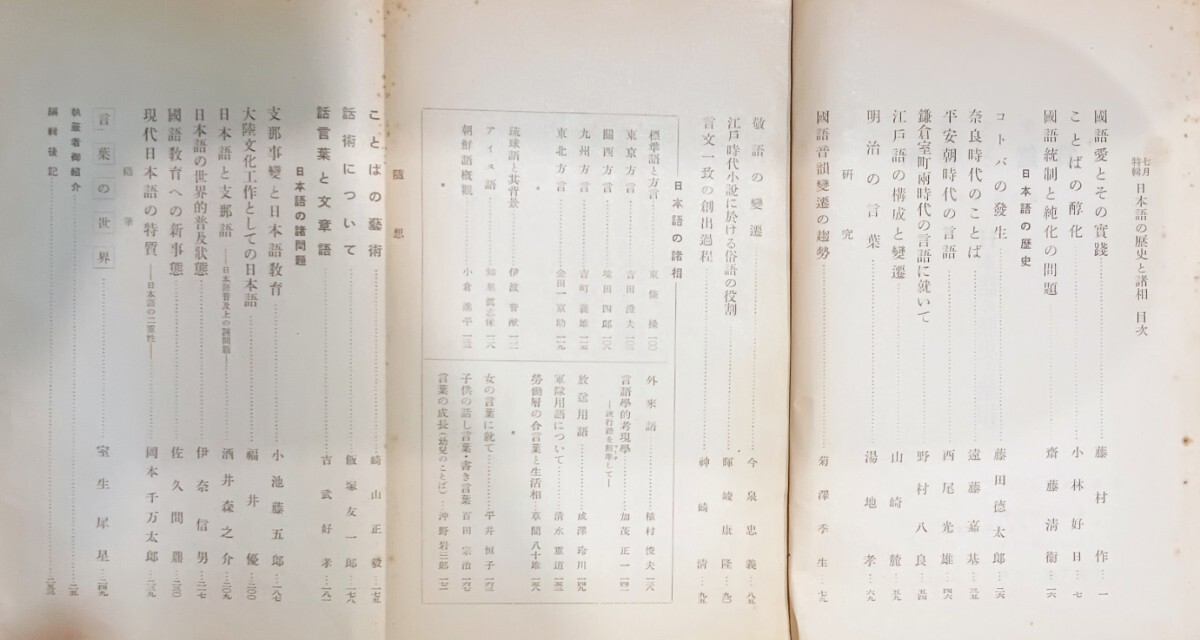 七月特輯 日本語の歷史と諸相 目次
國語愛とその實踐 藤村作 一
ことばの醇化 小林好日 七
國語統制と純化の問題 齋藤淸衞 一六
日本語の歷史
コトバの發生 藤田德太郎 二六
奈良時代のことば 遠藤嘉基 三五
平安朝時代の言語 西尾光雄 四六
鎌倉室町兩時代の言語に就いて 野村八良 五四
江戶語の構成と變遷 山崎麓 五九
明治の言葉 湯地孝 六九
硏究
國語音韻變遷の趨勢 菊澤季生 七九
敬語の變遷 今泉忠義 八五
江戶時代小說に於ける俗語の役割 暉峻康隆 九〇
言文一致の創出過程 神崎淸 九五
日本語の諸相
標準語と方言 東條操
東京方言 吉田澄夫
關西方言
九州方言 吉町義雄
東北方言 金田一京助
琉球語と其背景 伊波普猷
アイヌ語 知里眞志保
朝鮮語槪觀 小倉進平
外來語 植村俊夫
言語學的考現學 加茂正一
放送用語 成澤玲川
軍隊用語について 淸水重道
勞働層の合言葉と生活相 草間八十雄
女の言葉に就て 平井恒子
子供の話し言葉・書き言葉 百田宗治
言葉の成長(幼兒のことば) 沖野岩三郎
隨想
ことばの藝術 崎山正毅 一七五
話術について 飯塚友一郎 一七八
話言葉と文章語 吉武好孝 一八一
日本語の諸問題
支那事變と日本語敎育 小池藤五郎 一八七
大陸文化工作としての日本語 福井優 二〇〇
日本語と支那語 ―日本語普及上の諸問題― 酒井森之介 二〇九
日本語の世界的普及狀態 伊奈信男 二一七
國語敎育への新事態 佐久間鼎 二三〇
現代日本語の特質 ―日本語の二重性― 岡本千万太郎 二三九
隨筆
言葉の世界 室生犀星 二四九
執筆者御紹介
編輯後記